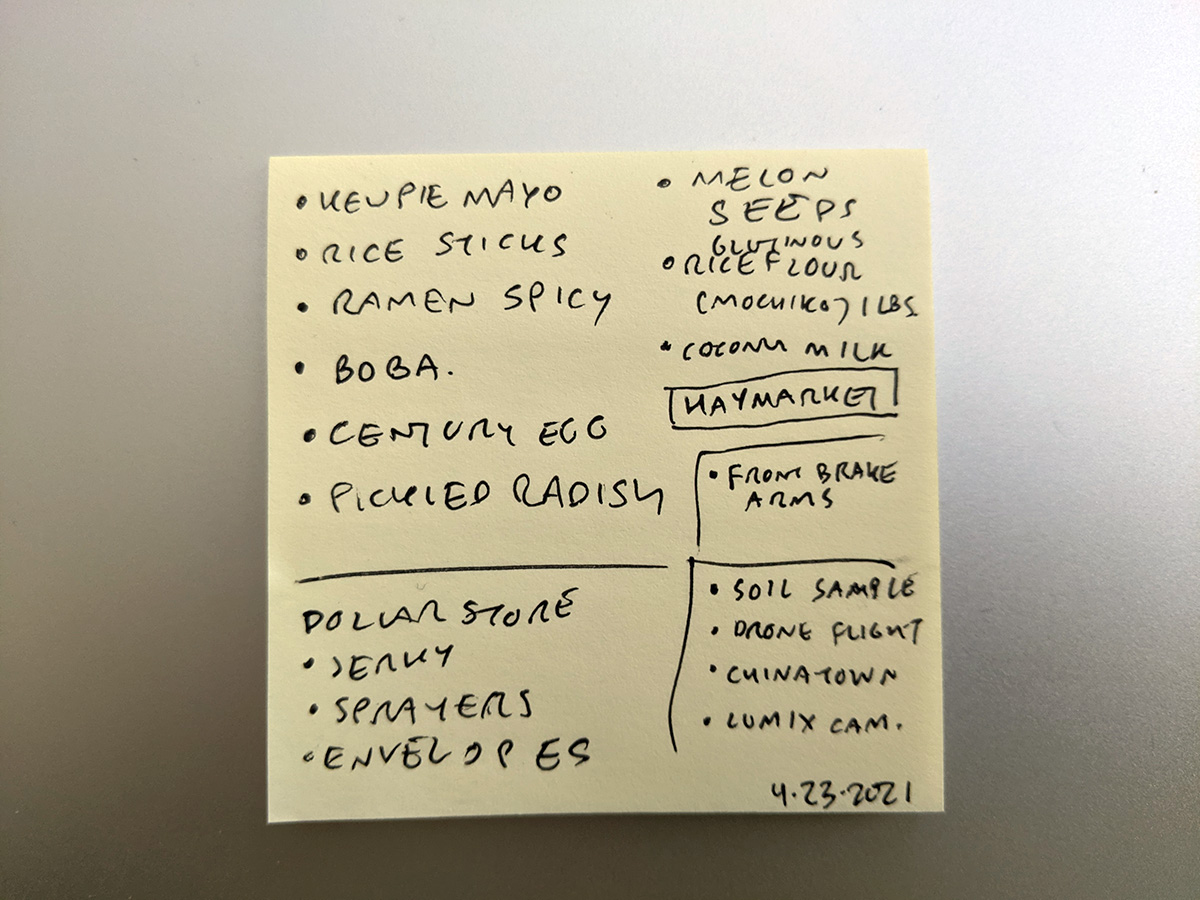 • KEWPIE MAYO
• RICE STICKS
• RAMEN SPICY
• BOBA.
• CENTURY EGG
• PICKLED RADISH
DOLLAR STORE
• JERKY
• SPRAYERS
• ENVELOPES
• MELON
SEEDS
GLUTINOUS
• RICE FLOUR
(MOCHIKO) 1 LBS.
• COCONUT MILK
HAYMARKET
• FRONT BRAKE
ARMS
• SOIL SAMPLE
• DRONE FLIGHT
• CHINATOWN
• LUMIX CAM.
4.23.2021